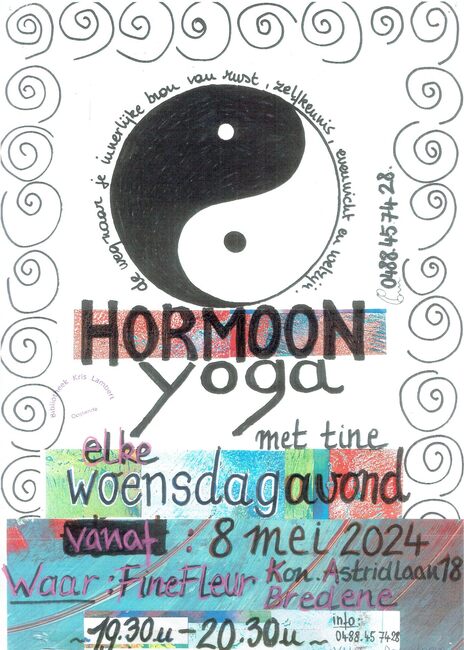 de weg naar je innerlijke bron van rust, zelfkennis, evenwicht en welzijn.
0488 45 74 28.
HORMOON
yoga
met tine
Bibliotheek Kris Lambert
Oostende
elke
woensdagavond
vanaf : 8 mei 2024
Waar : FineFleur Kon. Astridlaan 18
Bredene
~19.30u - 20.30u~
info:
0488.45 74 28